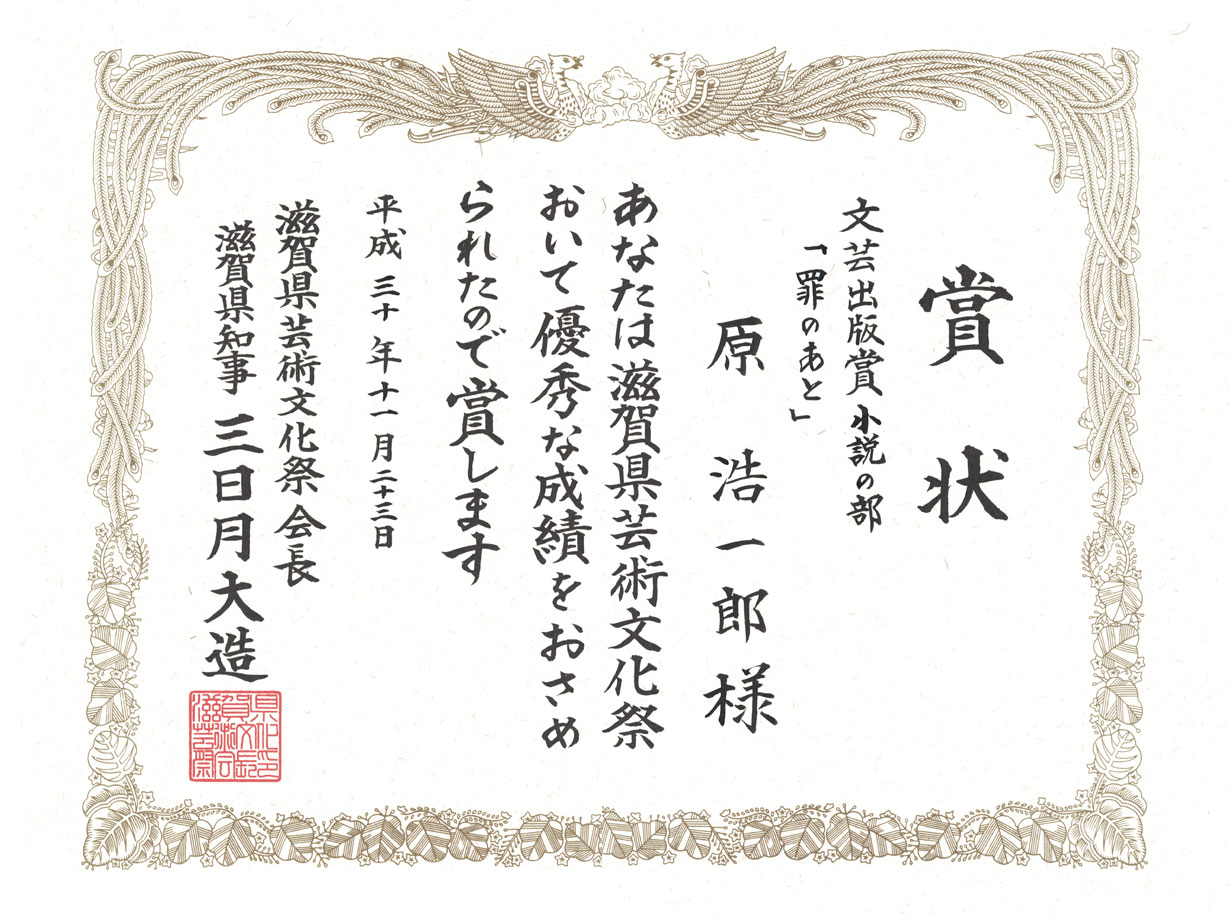 賞状
文芸出版賞 小説の部
「罪のあと」
原 浩一郎 様
あなたは滋賀県芸術文化祭
おいて優秀な成績をおさめ
られたので賞します
平成 三十 年 十一 月 二十三 日
滋賀県芸術文化祭 会長
滋賀県知事 三日月大造